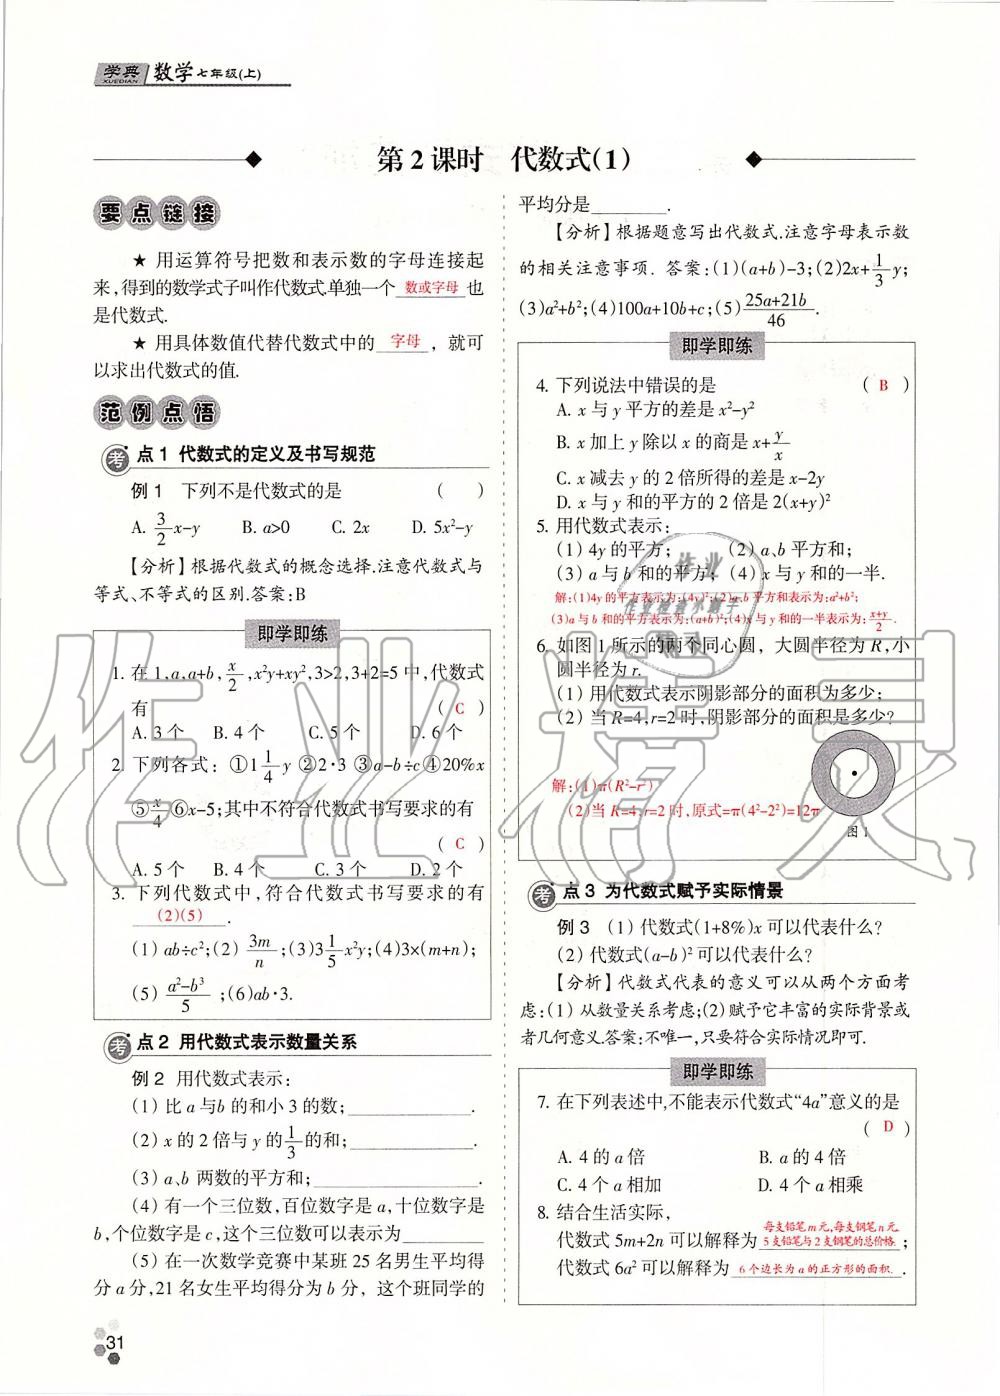 学典 XUEDIAN 数学七年级(上)
第2课时 代数式(1)
要点链接
★ 用运算符号把数和表示数的字母连接起
来,得到的数学式子叫作代数式.单独一个 数或字母 也
是代数式.
★ 用具体数值代替代数式中的 字母 ,就可
以求出代数式的值.
范例点悟
考点1 代数式的定义及书写规范
例1 下列不是代数式的是 ( )
A. 3/2x-y B. a>0 C. 2x D. 5x²-y
【分析】根据代数式的概念选择.注意代数式与
等式、不等式的区别.答案:B
即学即练
1. 在1,a,a+b,x/2,x²y+xy²,3>2,3+2=5中,代数式
有 ( C )
A. 3个 B. 4个 C. 5个 D. 6个
2. 下列各式:①1 1/4 y ②2·3 ③a-b÷c ④20%x
⑤x/4 ⑥x-5;其中不符合代数式书写要求的有
( C )
A. 5个 B. 4个 C. 3个 D. 2个
3. 下列代数式中,符合代数式书写要求的有
(2)(5) .
(1) ab÷c²;(2) 3m/n ;(3)3 1/5 x²y;(4)3×(m+n);
(5) a²-b³/5 ;(6)ab·3.
考点2 用代数式表示数量关系
例2 用代数式表示:
(1) 比a与b的和小3的数;____.
(2) x的2倍与y的1/3的和;____.
(3) a、b两数的平方和;____.
(4) 有一个三位数,百位数字是a,十位数字是
b,个位数字是c,这个三位数可以表示为____
(5) 在一次数学竞赛中某班25名男生平均得
分a分,21名女生平均得分为b分,这个班同学的
平均分是____.
【分析】根据题意写出代数式.注意字母表示数
的相关注意事项. 答案:(1)(a+b)-3;(2)2x+1/3y;
(3)a²+b²;(4)100a+10b+c;(5)25a+21b/46.
即学即练
4. 下列说法中错误的是 ( B )
A. x与y平方的差是x²-y²
B. x加上y除以x的商是x+y/x
C. x减去y的2倍所得的差是x-2y
D. x与y和的平方的2倍是2(x+y)²
5. 用代数式表示:
(1) 4y的平方; (2) a、b平方和;
(3) a与b和的平方; (4) x与y和的一半.
解:(1)4y的平方表示为:(4y)²;(2)a,b平方和表示为:a²+b²;
(3)a与b和的平方表示为:(a+b)²;(4)x与y和的一半表示为:x+y/2.
6. 如图1所示的两个同心圆,大圆半径为R,小
圆半径为r.
(1) 用代数式表示阴影部分的面积为多少;
(2) 当R=4,r=2时,阴影部分的面积是多少?
解:(1)π(R²-r²)
(2)当R=4,r=2时,原式=π(4²-2²)=12π
图1
考点3 为代数式赋予实际情景
例3 (1) 代数式(1+8%)x可以代表什么?
(2) 代数式(a-b)²可以代表什么?
【分析】代数式代表的意义可以从两个方面考
虑:(1) 从数量关系考虑;(2) 赋予它丰富的实际背景或
者几何意义.答案:不唯一,只要符合实际情况即可.
即学即练
7. 在下列表述中,不能表示代数式“4a”意义的是
( D )
A. 4的a倍 B. a的4倍
C. 4个a相加 D. 4个a相乘
8. 结合生活实际,
代数式5m+2n可以解释为 每支铅笔m元,每支钢笔n元,
5支铅笔与2支钢笔的总价格 ;
代数式6a²可以解释为 6个边长为a的正方形的面积. .
31
作业精灵